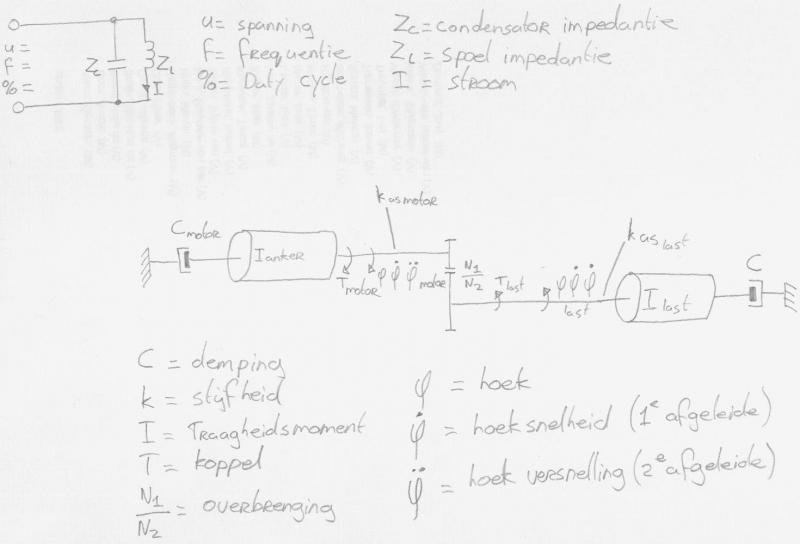 u =
f =
% =
Zc
ZL
I
u = spanning
f = frequentie
% = Duty cycle
Zc = condensator impedantie
ZL = spoel impedantie
I = stroom
k as motor
C motor
I anker
T motor
φ φ̇ φ̈ motor
N1
N2
T last
φ φ̇ φ̈
last
k as last
I last
C
C = demping
k = stijfheid
I = Traagheidsmoment
T = koppel
N1
N2 = overbrenging
φ = hoek
φ̇ = hoeksnelheid (1e afgeleide)
φ̈ = hoek versnelling (2e afgeleide)